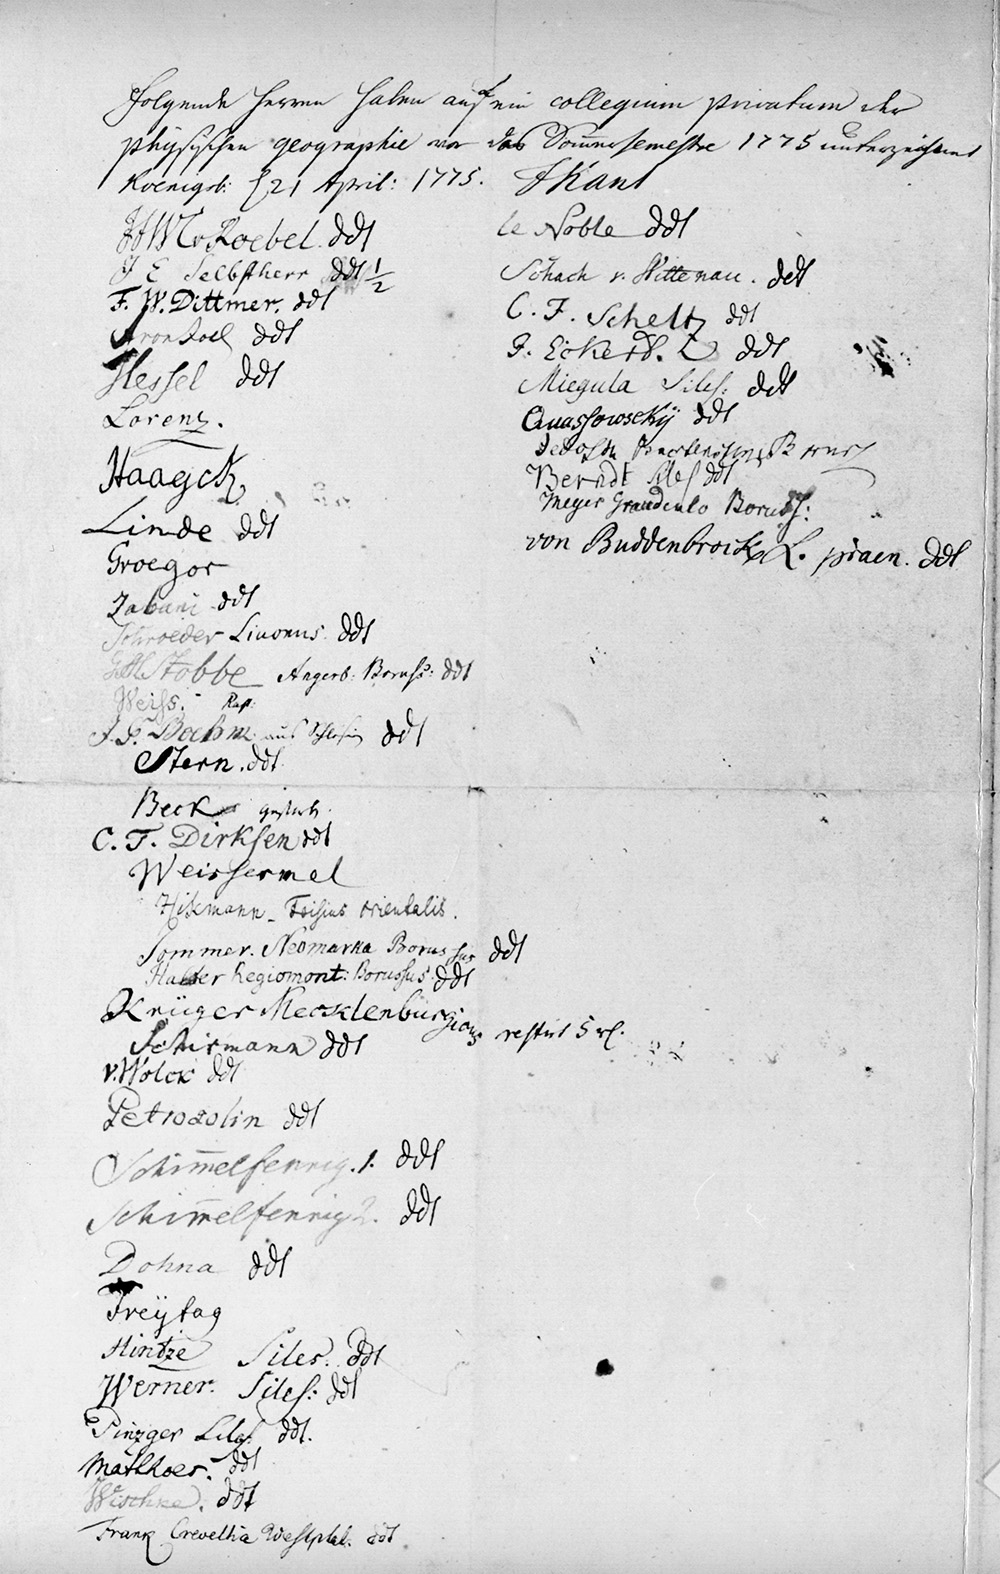 Folgende Herren haben auf ein collegium privatum der
physischen geographie vor das Sommersemestre 1775 unterzeichnet
Koenigsb: d 21 April: 1775. IKant
v Koebel. ddt
J E Selbstherr ddt 1/2
F. W. Dittmer. ddt
Aron Joel ddt
Hessel ddt
Lorenz.
Haagck
Linde ddt
Groeger
Zabani ddt
Schroeder Livonus ddt
Stobbe Angerb: Boruss: ddt
Weiss.
J. G. Boehm aus Schlesien ddt
Stern. ddt
Beck
C. F. Dirksen ddt
Weissermel
Hikmann_ Frisius orientalis.
Sommer. Neomarka Borussus ddt
Halter Regiomont: Borussus ddt
Krüger Mecklenburgicus restirt 5 rl.
Schirmann ddt
v. Wolck ddt
Petrosolin ddt
Schim̅elfennig. 1. ddt
Schim̅elfennig 2. ddt
Dohna ddt
Freÿtag
Hintze Siles. ddt
Werner. Siles: ddt
Pinzger Siles. ddt.
ddt
Wischke. ddt
Frank Crevellia Westphal. ddt
le Noble ddt
Schach v. Wittenau. ddt
C. F. Scheltz ddt
J. Eckerd. ddt
Miegula Siles: ddt
Quassowsckÿ ddt
Berndt Siles ddt
Meyer Graudento Boruss:
von Buddenbrock L. praen. ddt